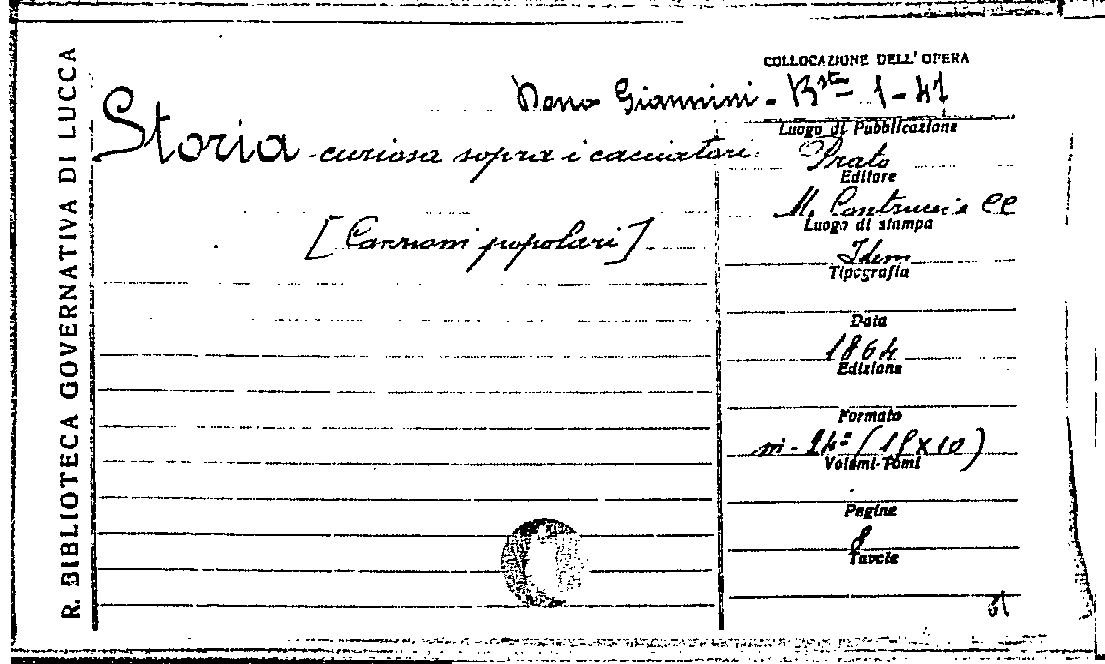 R. BIBLIOTECA GOVERNATIVA DI LUCCA
COLLOCAZIONE DELL'OPERA
Dono Giannini - Bsta - 1 - 41
Storia curiosa sopra i cacciatori.
[Canzoni popolari]
Luogo di Pubblicazione
Prato
Editore
M. Contrucci e CC
Luogo di stampa
Idem
Tipografia
Data
1864
Edizione
Formato
in-24° (15 x 10)
Volumi-Tomi
Pagine
8
Tavole